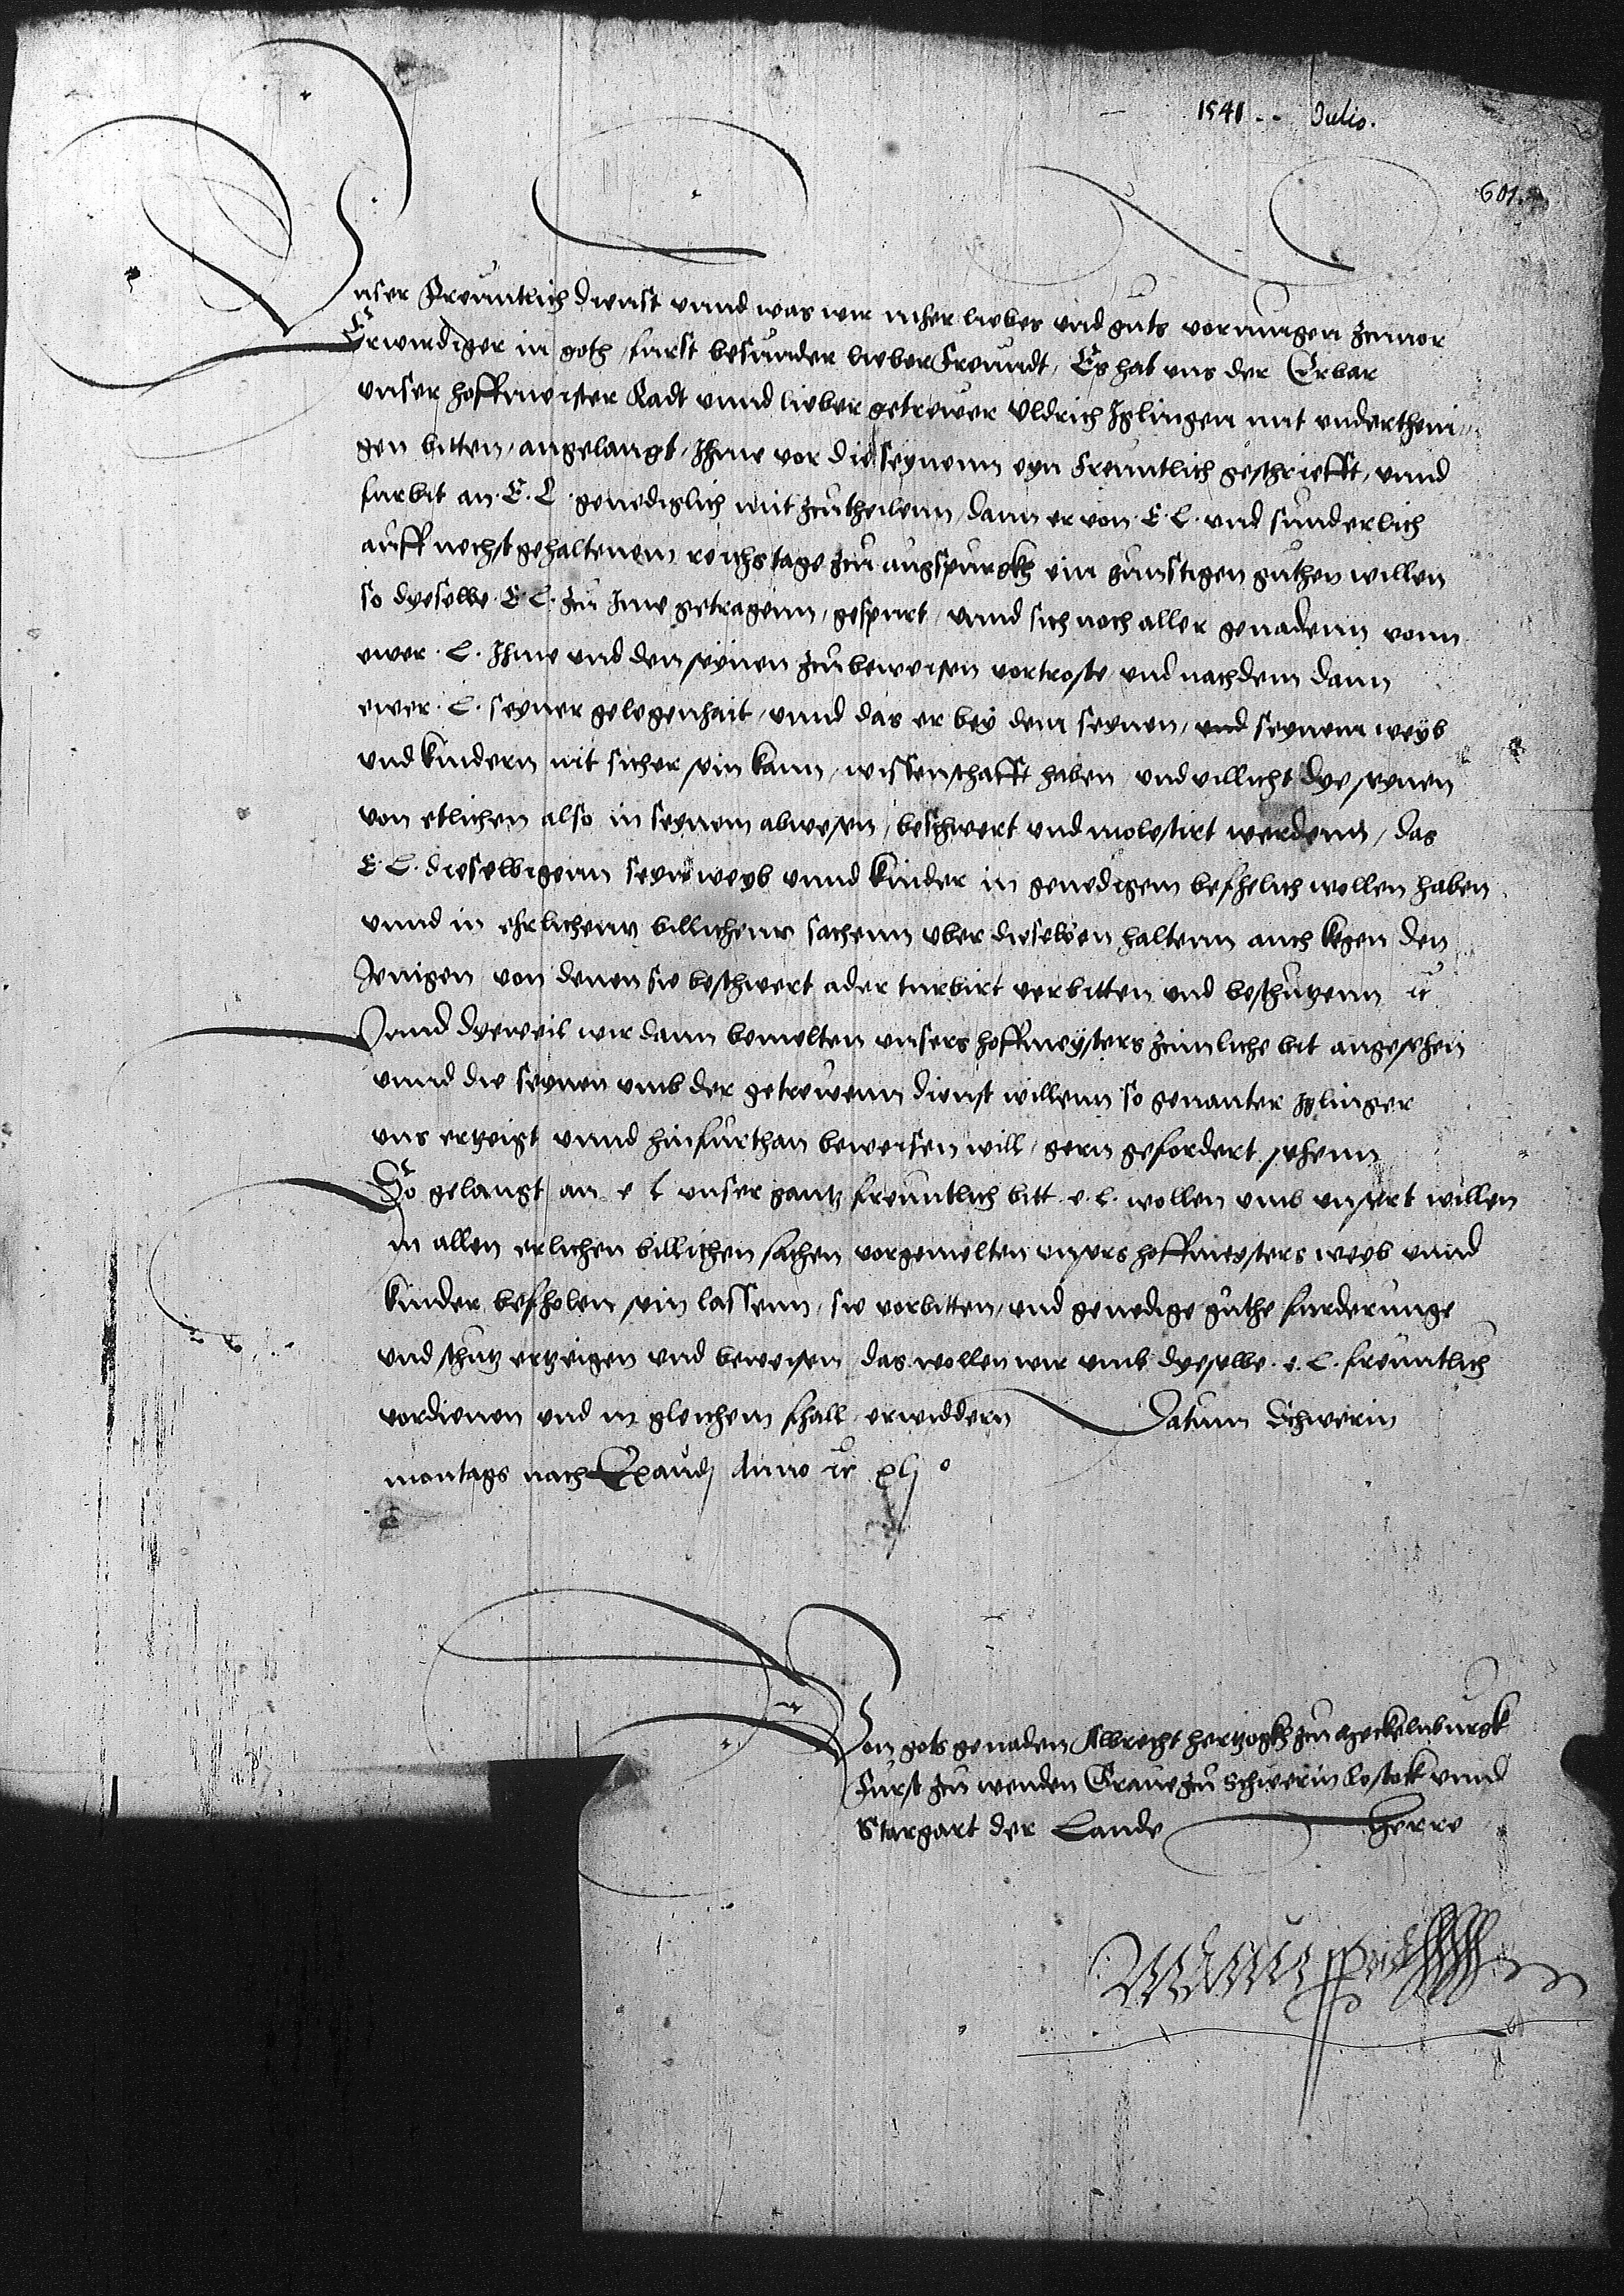 1541 -- Julio.
601.
Unser Freuntlich dienst unnd was wir mher liebes und guts vormugen zuuor
Erwirdiger in goth furst besunder lieber Freundt, Es hat uns der Erbar
unser hoffmeister Radt unnd lieber getrewer Uldrich Iglingen mit undertheni
gen bitten, angelangt, Ihme vor die seynenn eyn freuntlich geschriefft, unnd
furbit an E. L. genediglich mit zutheilenn, dann er von E. L. und sunderlich
auff nechst gehaltenem reichstage zu augspurgk ein gunstigen guthen willen
so dyeselbe E L. zu Ime getragenn, gespurt, unnd sich noch aller genadenn vonn
ewer. L. Ihme und den seynen zubeweisen vortroste, und nachdem dann
ewer. L. seyner gelegenhait, unnd das er bey dem seynen, und seynem weyb
und kindern nit sicher sein kann, wissenschafft haben, und villicht dye seynen
von etlichen also in seynem abwesen, beschwert und molestirt werdenn, das
E. L. dieselbigenn seyn weyb unnd kinder in genedigem beshelich wollen haben
unnd in ehrlichenn billichenn sachenn uber dieselben haltenn auch kegen den
Jenigen, von denen sie beschwert ader turbirt verbitten und beschutzenn ꝛc
Unnd dyeweil wir dann bemelten unsers hoffmeysters zimliche bit angesehen
unnd die seynen umb der getrewenn dienst willenn so genanter Iglinger
uns ertzeigt unnd hinfurthan beweisen will, gern gefordert sehenn
So gelangt an e l unser gantz freuntlich bitt e. l. wollen umb unsert willen
in allen erlichen billichen sachen vorgemelten unsers hoffmeysters weyb unnd
kinder befholen sein lassenn, sie vorbitten, und genedige guthe furderunge
und schutz ertzeigen und beweisen das wollen wir umb dyeselbe. e. L. freuntlich
vordienen und in gleichem fhall, erwiddern Datum Schwerin
montags nach Exaudj Anno ꝛc xlj o
Von gots genaden Albrecht hertzogk zu Meckelnburgk
Furst zu wenden Graue zu Schwerin Rostok unnd
Stargart der Lande Herre